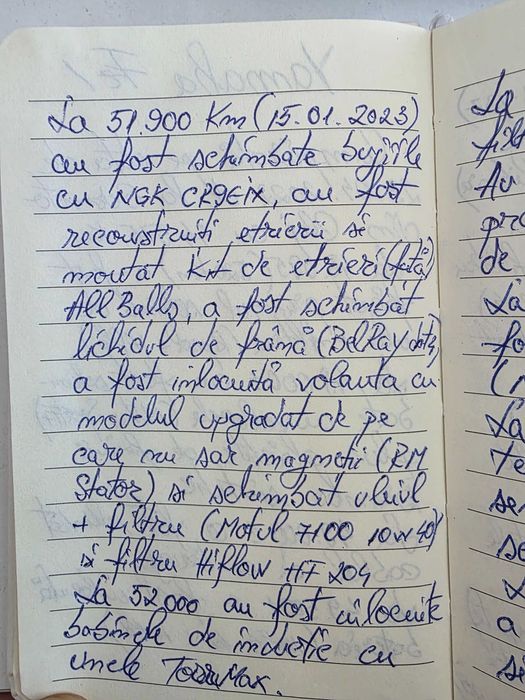 La 51.900 Km (15.01.2023)
au fost schimbate bujiile
cu NGK CR9EIX, au fost
reconstruiti etrierii si
montat kit de etrieri (fată)
All Balls, a fost schimbat
lichidul de frână (BelRay dot4)
a fost inlocuită volanta cu
modelul upgradat de pe
care nu sar magnetii (RM
Stator) si schimbat uleiul
+ filtru (Motul 7100 10w40)
si filtru Hiflow HF 204
La 52.000 au fost inlocuite
bobinele de inductie cu
unele TourMax.
La
Au
de
La
fo
La
a
si